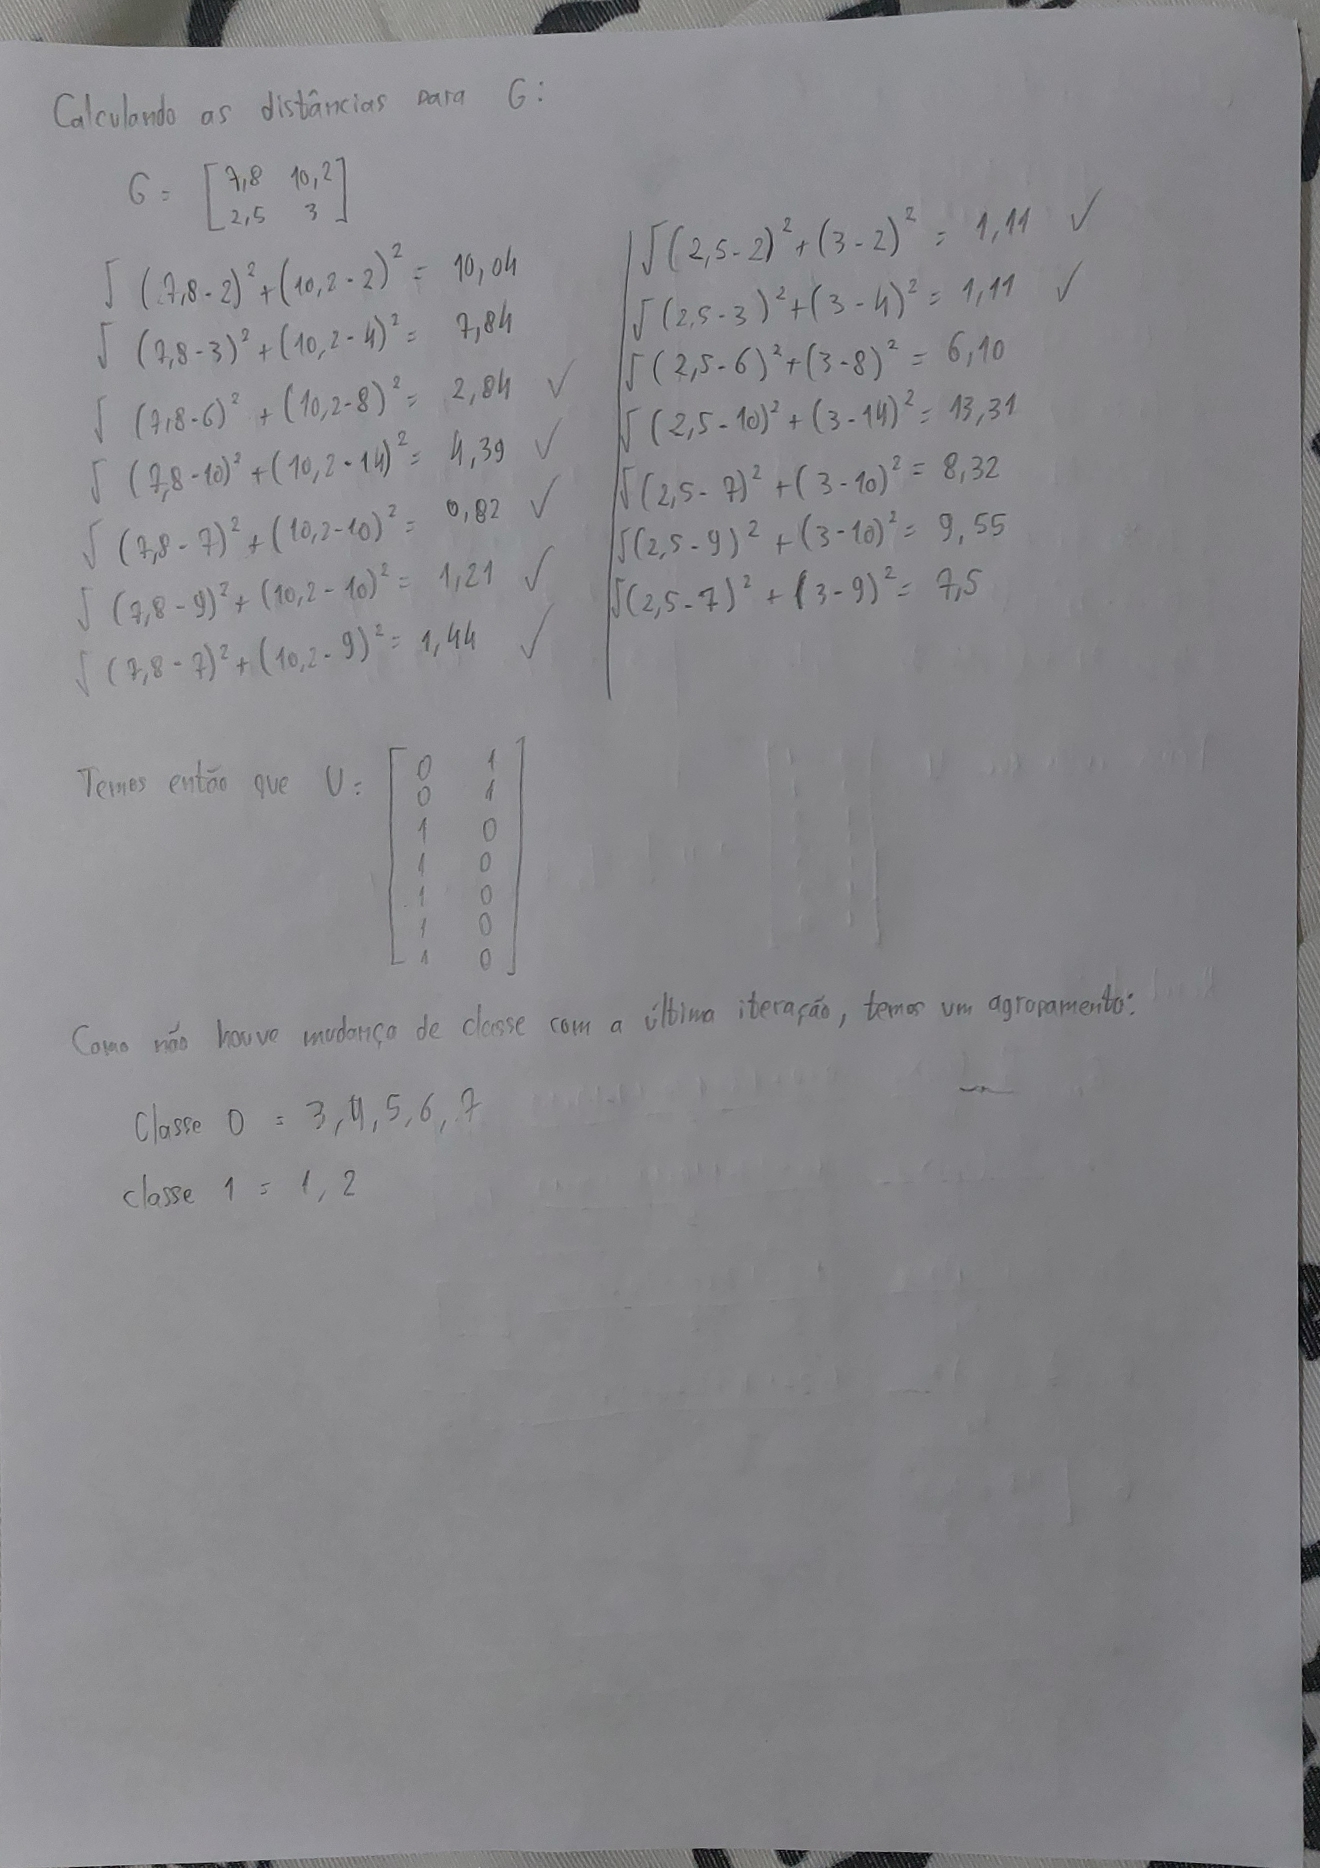 Calculando as distâncias para G:
G = [7,8 10,2
2,5 3]
√(7,8-2)²+(10,2-2)² = 10,04
√(7,8-3)²+(10,2-4)² = 7,84
√(7,8-6)²+(10,2-8)² = 2,84 ✓
√(7,8-10)²+(10,2-14)² = 4,39 ✓
√(7,8-7)²+(10,2-10)² = 0,82 ✓
√(7,8-9)²+(10,2-10)² = 1,21 ✓
√(7,8-7)²+(10,2-9)² = 1,44 ✓
√(2,5-2)²+(3-2)² = 1,11 ✓
√(2,5-3)²+(3-4)² = 1,11 ✓
√(2,5-6)²+(3-8)² = 6,10
√(2,5-10)²+(3-14)² = 13,31
√(2,5-7)²+(3-10)² = 8,32
√(2,5-9)²+(3-10)² = 9,55
√(2,5-7)²+(3-9)² = 7,5
Temos então que U = [0 1
0 1
1 0
1 0
1 0
1 0
1 0]
Como não houve mudança de classe com a última iteração, temos um agrupamento:
Classe 0 = 3,4,5,6,7
classe 1 = 1,2